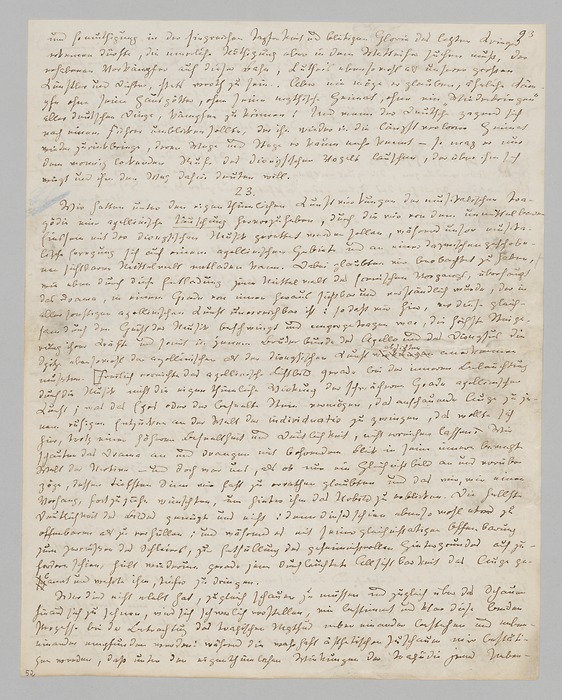 und Ermuthigung in der siegreichen Tapferkeit und blutigen Glorie des letzten Krieges 93
erkennen dürfte, die innerliche Nöthigung aber in dem Wetteifer suchen muß, der
erhabenen Vorkämpfer auf dieser Bahn, Luther's ebensowohl als unserer großen
Künstler und Dichter, stets werth zu sein. Aber nie möge er glauben, ähnliche Käm-
pfe ohne seine Hausgötter, ohne seine mythische Heimat, ohne ein „Wiederbringen“
aller deutschen Dinge, kämpfen zu können! Und wenn der Deutsche zagend sich
nach einem Führer umblicken sollte, der ihn wieder in die längst verlorne Heimat
zurückbringe, deren Wege und Stege er kaum mehr kennt — so mag er nur
dem wonnig lockenden Rufe des dionysischen Vogels lauschen, der über ihm sich
wiegt und ihm den Weg dahin deuten will.
23.
Wir hatten unter den eigenthümlichen Kunstwirkungen der musikalischen Tra-
gödie eine apollinische Täuschung hervorzuheben, durch die wir vor dem unmittelbaren
Einssein mit der dionysischen Musik gerettet werden sollen, während unsre musika-
lische Erregung sich auf einem apollinischen Gebiete und an einer dazwischengeschobe-
nen sichtbaren Mittelwelt entladen kann. Dabei glaubten wir beobachtet zu haben,
wie eben durch diese Entladung jene Mittelwelt des scenischen Vorgangs, überhaupt
das Drama, in einem Grade von innen heraus sichtbar und verständlich wurde, der in
aller sonstigen apollinischen Kunst unerreichbar ist: so daß wir hier, wo diese gleich-
sam durch den Geist der Musik beschwingt und emporgetragen war, die höchste Steige-
rung ihrer Kräfte und somit in jenem Bruderbunde des Apollo und des Dionysus die
Spitze ebensowohl der apollinischen als der dionysischen Kunst absichten anerkennen
mußten. Freilich erreichte das apollinische Lichtbild gerade bei der inneren Beleuchtung
durch die Musik nicht die eigenthümliche Wirkung der schwächeren Grade apollinischer
Kunst; was das Epos oder der beseelte Stein vermögen, das anschauende Auge zu je-
nem ruhigen Entzücken an der Welt der individuatio zu zwingen, das wollte sich
hier, trotz einer höheren Beseeltheit und Deutlichkeit, nicht erreichen lassen. Wir
schauten das Drama an und drangen mit bohrendem Blick in seine innere bewegte
Welt der Motive — und doch war uns, als ob nur ein Gleichnißbild an uns vorüber
zöge, dessen tiefsten Sinn wir fast zu errathen glaubten und das wir, wie einen
Vorhang, fortzuziehn wünschten, um hinter ihm das Urbild zu erblicken. Die hellste
Deutlichkeit des Bildes genügte uns nicht: denn dieses schien ebenso wohl etwas zu
offenbaren als zu verhüllen; und während es mit seiner gleichnißartigen Offenbarung
zum Zerreißen des Schleiers, zur Enthüllung des geheimnißvollen Hintergrundes auf zu-
fordern schien, hielt wiederum gerade jene durchleuchtete Allsichtbarkeit das Auge ge-
bannt und wehrte ihm, tiefer zu dringen.
Wer dies nicht erlebt hat, zugleich schauen zu müssen und zugleich über das Schauen
hinaus sich zu sehnen, wird sich schwerlich vorstellen, wie bestimmt und klar diese beiden
Prozesse bei der Betrachtung des tragischen Mythus neben einander bestehen und neben-
einander empfunden werden: während die wahrhaft ästhetischen Zuschauer mir bestäti-
gen werden, daß unter den eigenthümlichen Wirkungen der Tragödie jenes Neben-
52